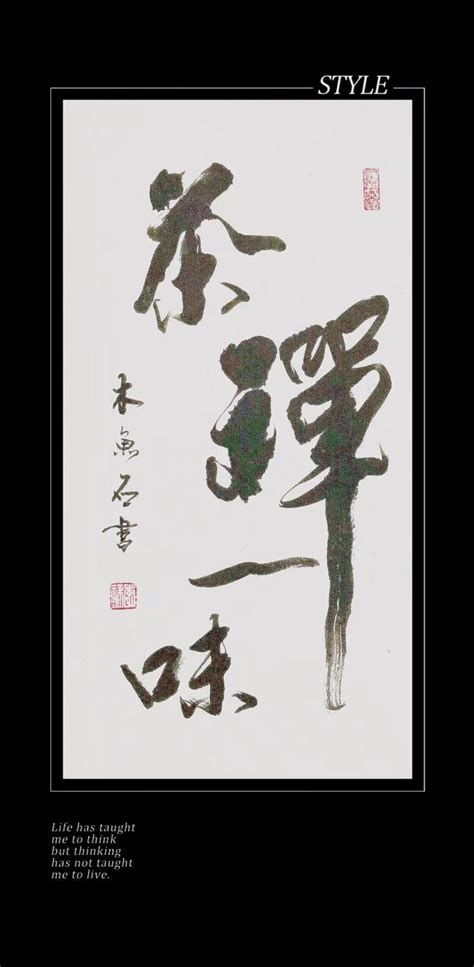 STYLE
茶
禪
一
味
木魚石書
Life has taught
me to think
but thinking
has not taught
me to live.